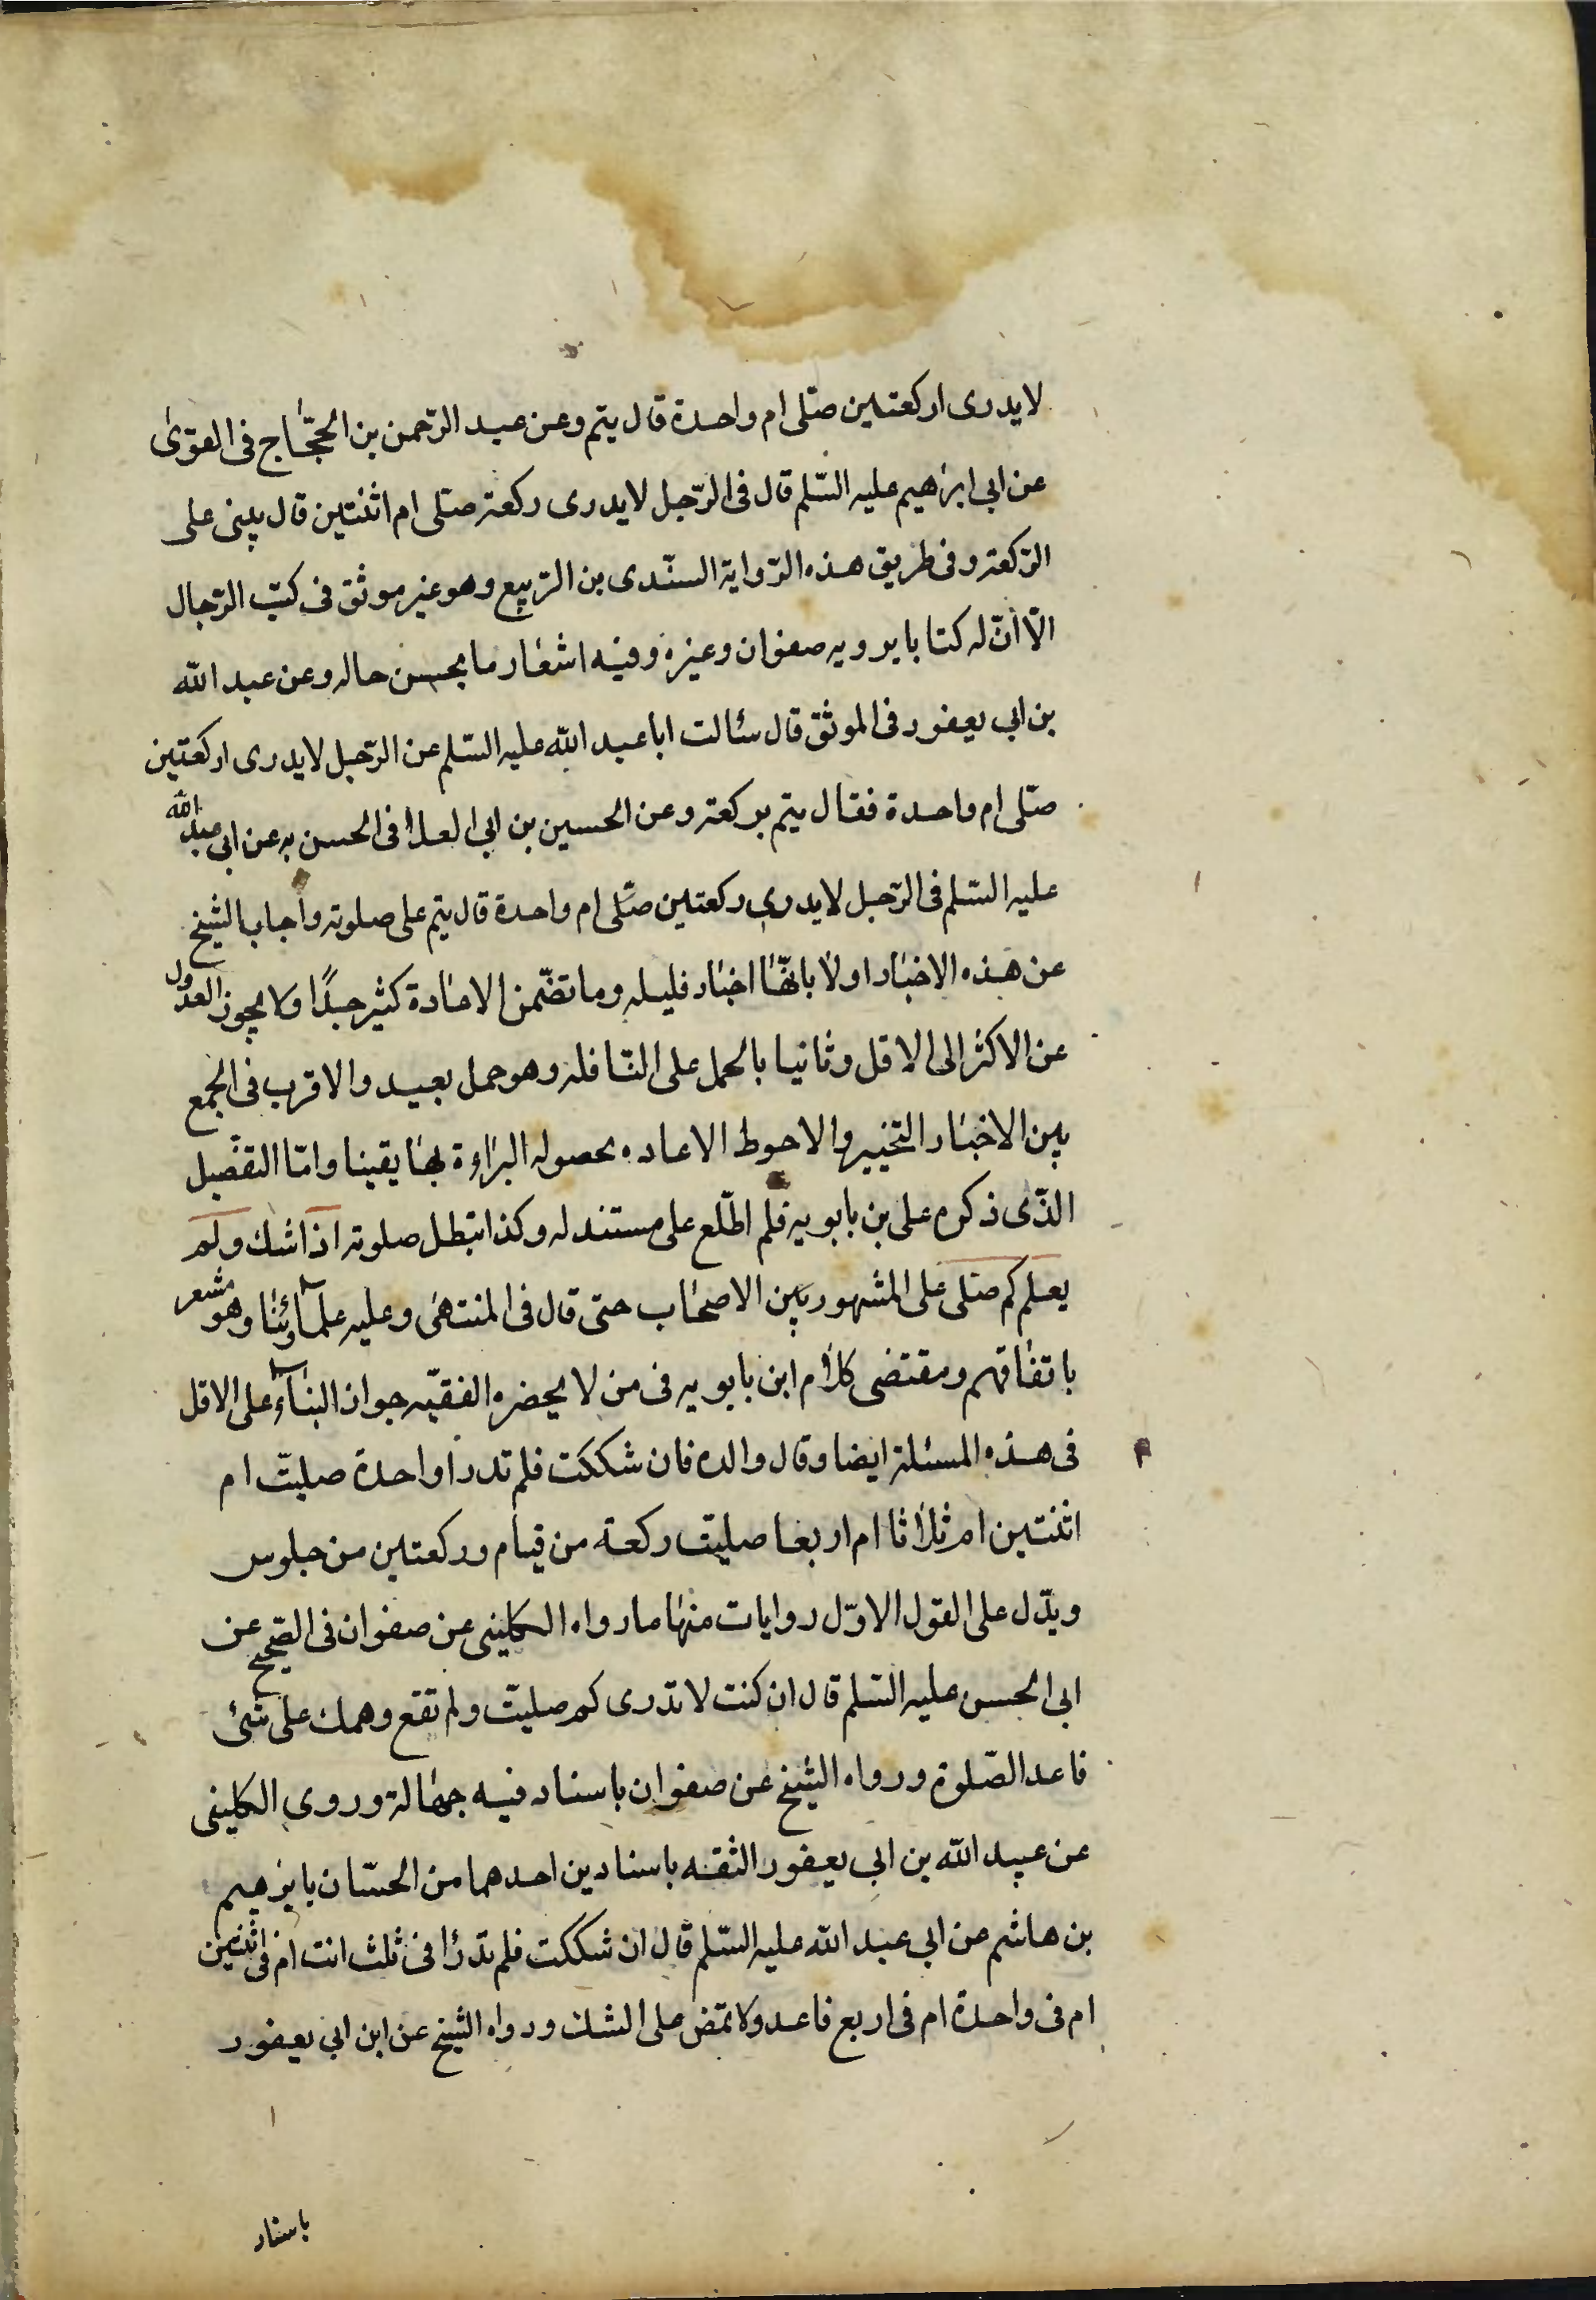 لا يدرى اركعتين صلى ام واحدة قال يتم وعن عبد الرحمن بن الحجاج فى القوى
عن ابى ابرهيم عليه السلم قال فى الرجل لا يدرى ركعة صلى ام اثنتين قال يبنى على
الركعة وفى طريق هذه الرواية السندى بن الربيع وهو غير موثق فى كتب الرجال
الا ان له كتابا يرويه صفوان وغيره وفيه اشعار ما بحسن حاله وعن عبد الله
بن ابى يعفور فى الموثق قال سئالت ابا عبد الله عليه السلم عن الرجل لا يدرى اركعتين
صلى ام واحدة فقال يتم بركعة وعن الحسين بن ابى العلا فى الحسن به عن ابى عبد الله
عليه السلم فى الرجل لا يدرى ركعتين صلى ام واحدة قال يتم على صلوته واجاب الشيخ
عن هذه الاخبار اولا بانها اخبار قليله وما تضمن الاعادة كثير جدًا ولا يجوز العدول
عن الاكثر الى الاقل وثانيا بالحمل على النافله وهو حمل بعيد والاقرب فى الجمع
بين الاخبار التخيير والاحوط الاعاده بحصوله البراءة بها يقينا واما التفصيل
الذى ذكره على بن بابويه فلم اطلع على مستند له وكذا تبطل صلوته اذا شك ولم
يعلم كم صلى على المشهور بين الاصحاب حتى قال فى المنتهى وعليه علماؤنا وهو مشعر
باتفاقهم ومقتضى كلام ابن بابويه فى من لا يحضره الفقيه جواز البناء على الاقل
فى هذه المسئلة ايضا وقال والده فان شككت فلم تدر اواحدة صليت ام
اثنتين ام ثلاثا ام اربعا صليت ركعة من قيام وركعتين من جلوس
ويدل على القول الاول روايات منها ما رواه الكلينى عن صفوان فى الصحيح عن
ابى الحسن عليه السلم قال ان كنت لا تدرى كم صليت ولم تقع وهمك على شئ
فاعد الصلوة ورواه الشيخ عن صفوان باسناد فيه جهالة وروى الكلينى
عن عبد الله بن ابى يعفور الثقه باسنادين احدهما من الحسان بابرهيم
بن هاشم عن ابى عبد الله عليه السلم قال ان شككت فلم تدر افى ثلث انت ام فى اثنتين
ام فى واحدة ام فى اربع فاعد ولا تمض على الشك ورواه الشيخ عن ابن ابى يعفور
باسناد